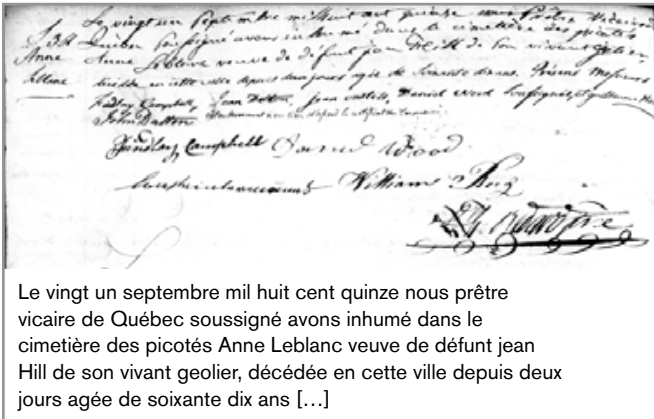 Le vingt un Septembre mil huit cent quinze nous Prêtre Vicaire de
S. 34 Québec soussigné avons inhumé dans le cimetière des picotés
Anne Anne Leblanc veuve de défunt jean Hill de son vivant geolier,
Leblanc décédée en cette ville depuis deux jours agée de soixante dix ans. Présens Messieurs
Findlay Campbell, Jean Dalton, jean Daniel Wood soussignés, et guillaume
John Dalton
Findlay Campbell Daniel Wood
William King
Le vingt un septembre mil huit cent quinze nous prêtre
vicaire de Québec soussigné avons inhumé dans le
cimetière des picotés Anne Leblanc veuve de défunt jean
Hill de son vivant geolier, décédée en cette ville depuis deux
jours agée de soixante dix ans […]